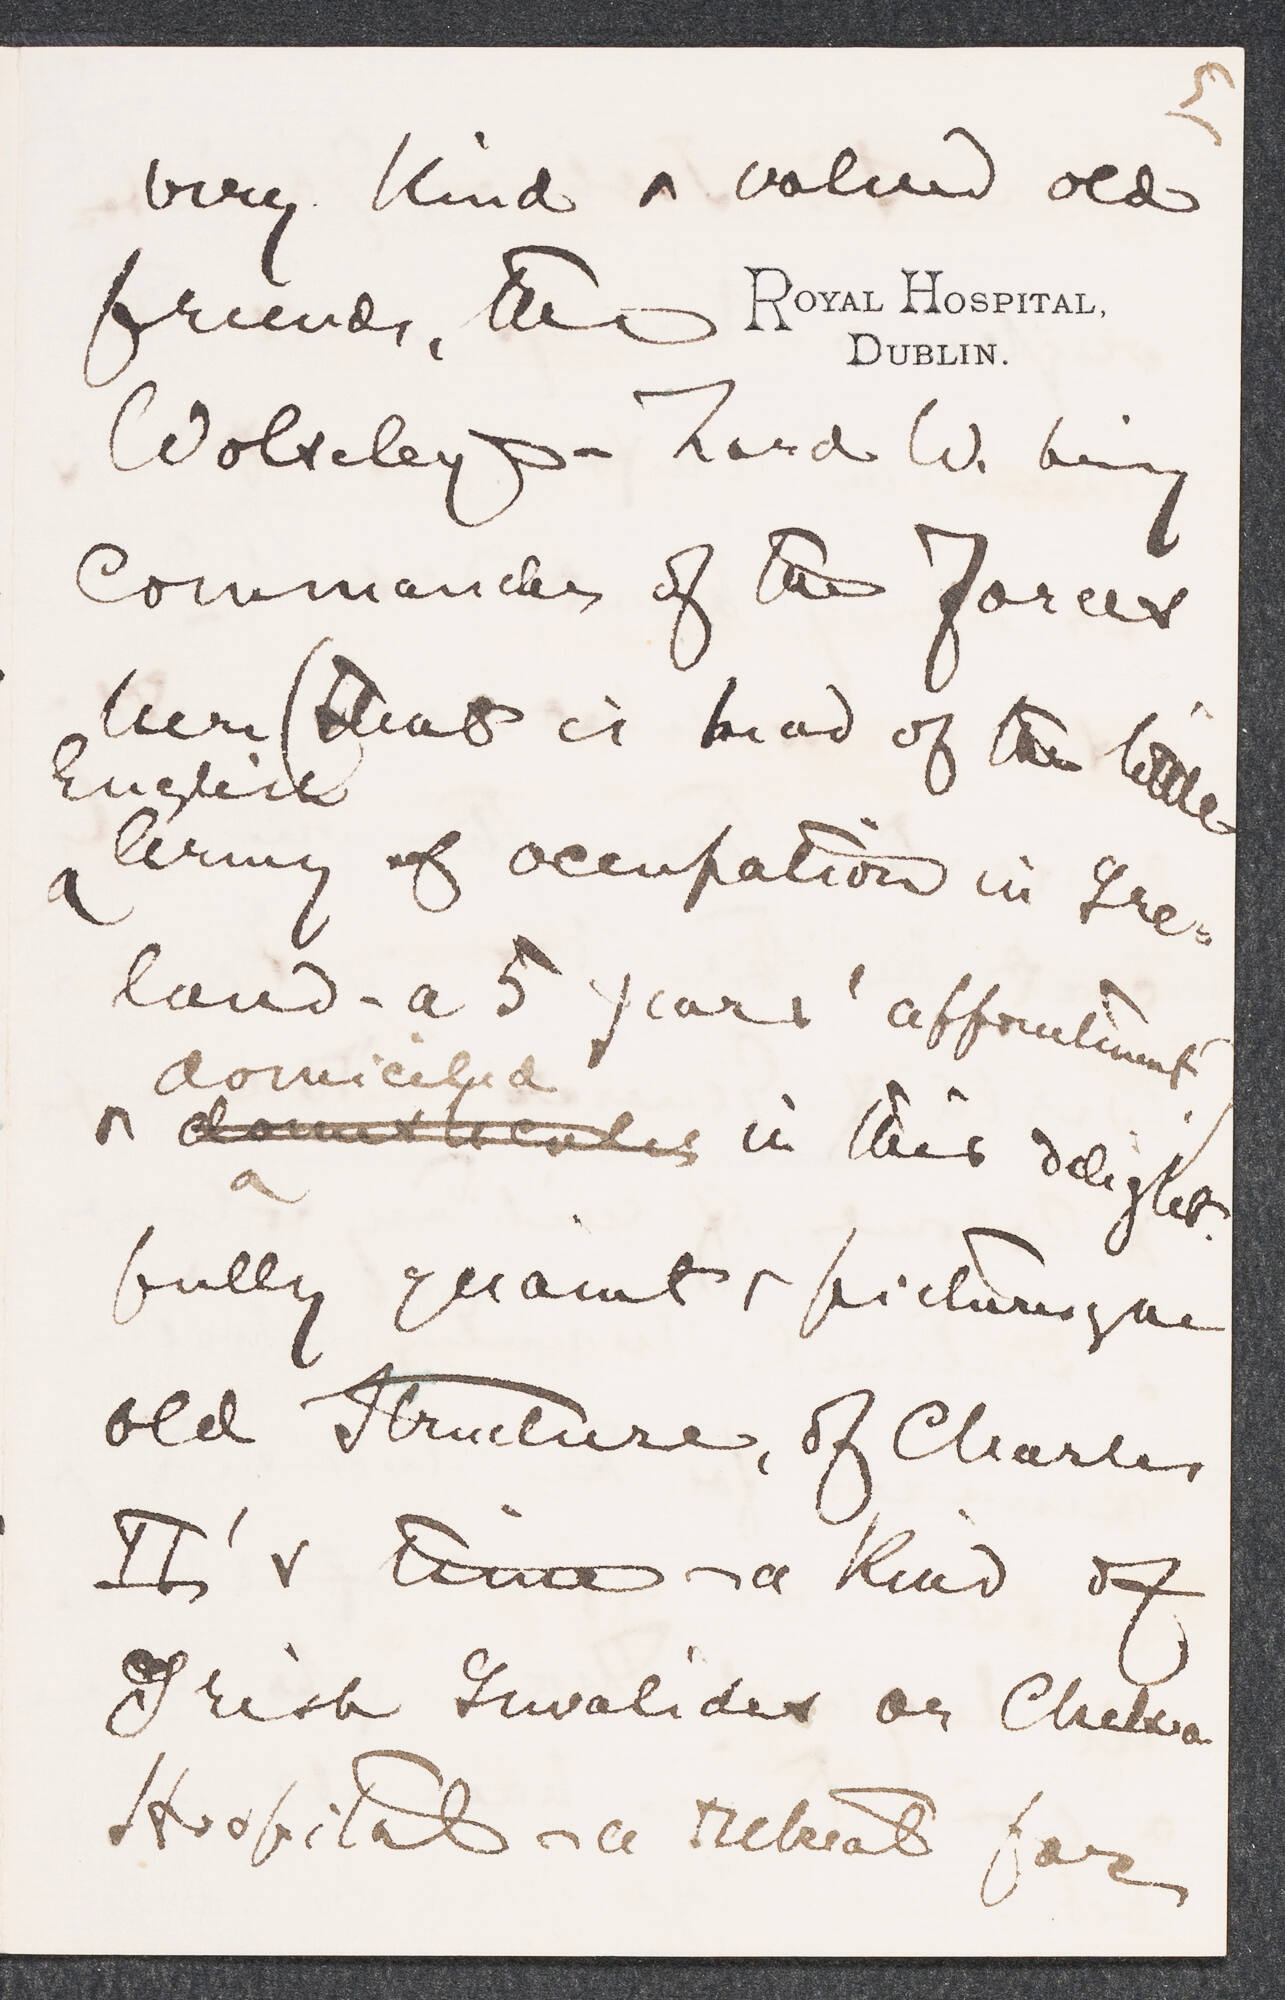 5
very kind & valued old
ROYAL HOSPITAL,
DUBLIN.
friends, the
Wolseleys - Lord W. being
Commander of the Forces
here (that is head of the little
English
army of occupation in Ire=
land - a 5 years' appointment)
domiciled
& domesticated in this delight-
fully quaint & picturesque
old Structure, of Charles
II's time - a kind of
Irish Invalides or Chelsea
Hospital - a retreat for